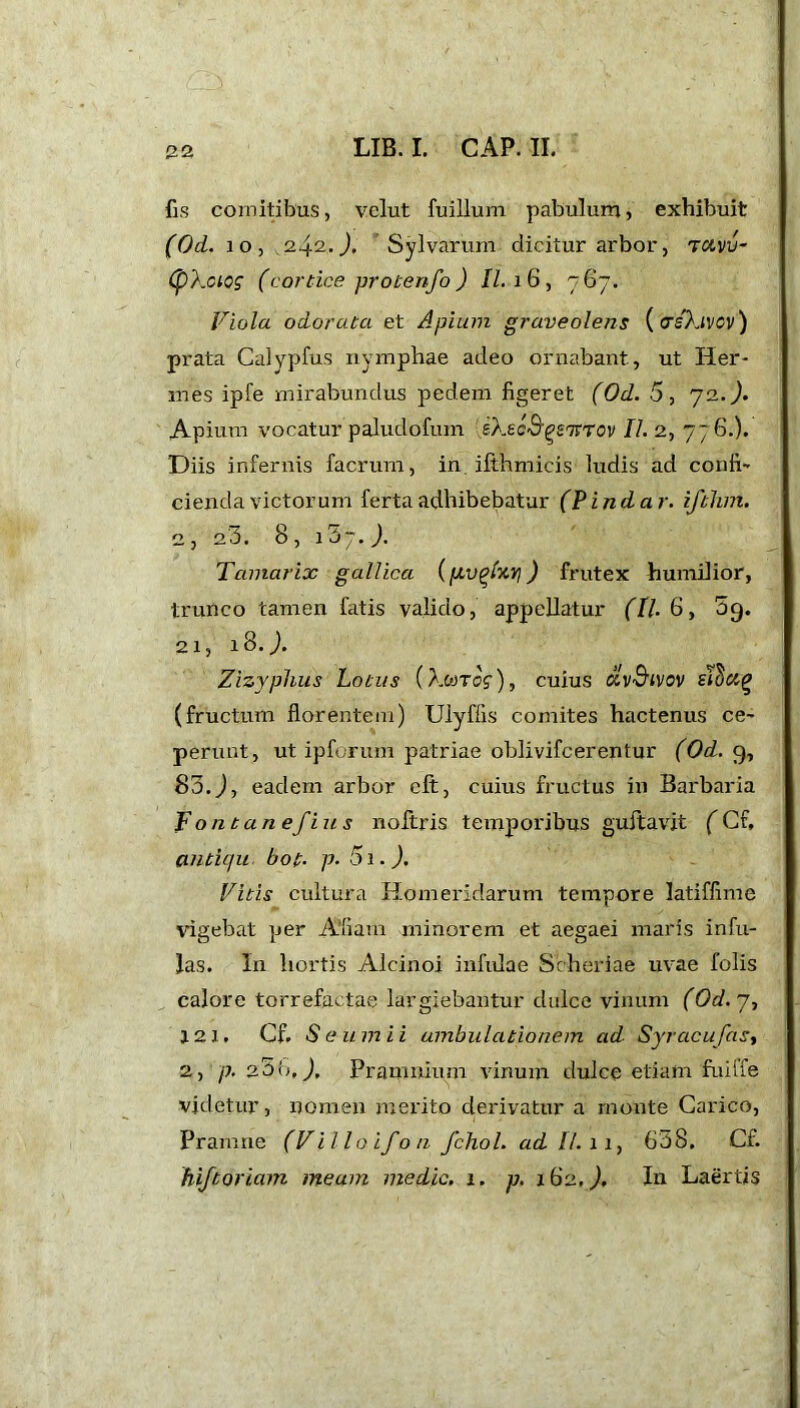 22 LIB. I. CAP. II.
ſis comitibus, velut ſuillum pabulum, exhibuit
(Od. 10, 242.). Sylvarum dicitur arbor, τανύ-
φλοιος (cortice protenſo) Il. 16, 767.
Viola odorata et Apium graveolens (σέλινον)
prata Calypſus nymphae adeo ornabant, ut Her-
mes ipſe mirabundus pedem figeret (Od. 5, 72.).
Apium vocatur paludoſum ἐλεόθρεπτον Il. 2, 776.).
Diis infernis ſacrum, in iſthmicis ludis ad confi-
cienda victorum ſerta adhibebatur (Pindar. iſthm.
2, 23. 8, 137.).
Tamarix gallica (μυρίκη) frutex humilior,
trunco tamen ſatis valido, appellatur (Il. 6, 39.
21, 18.).
Zizyphus Lotus (λωτός), cuius ἄνθινον εἶδαρ
(fructum florentem) Ulyſſis comites hactenus ce-
perunt, ut ipſorum patriae obliviſcerentur (Od. 9,
83.), eadem arbor eſt, cuius fructus in Barbaria
Fontaneſius noſtris temporibus guſtavit (Cf.
antiqu. bot. p. 51.).
Vitis cultura Homeridarum tempore latiſſime
vigebat per Aſiam minorem et aegaei maris inſu-
las. In hortis Alcinoi inſulae Scheriae uvae ſolis
calore torrefactae largiebantur dulce vinum (Od. 7,
121. Cf. Seumii ambulationem ad Syracuſas,
2, p. 236.). Pramnium vinum dulce etiam fuiſſe
videtur, nomen merito derivatur a monte Carico,
Pramne (Villoiſon ſchol. ad Il. 11, 638. Cf.
hiſtoriam meam medic. 1. p. 162.). In Laërtis